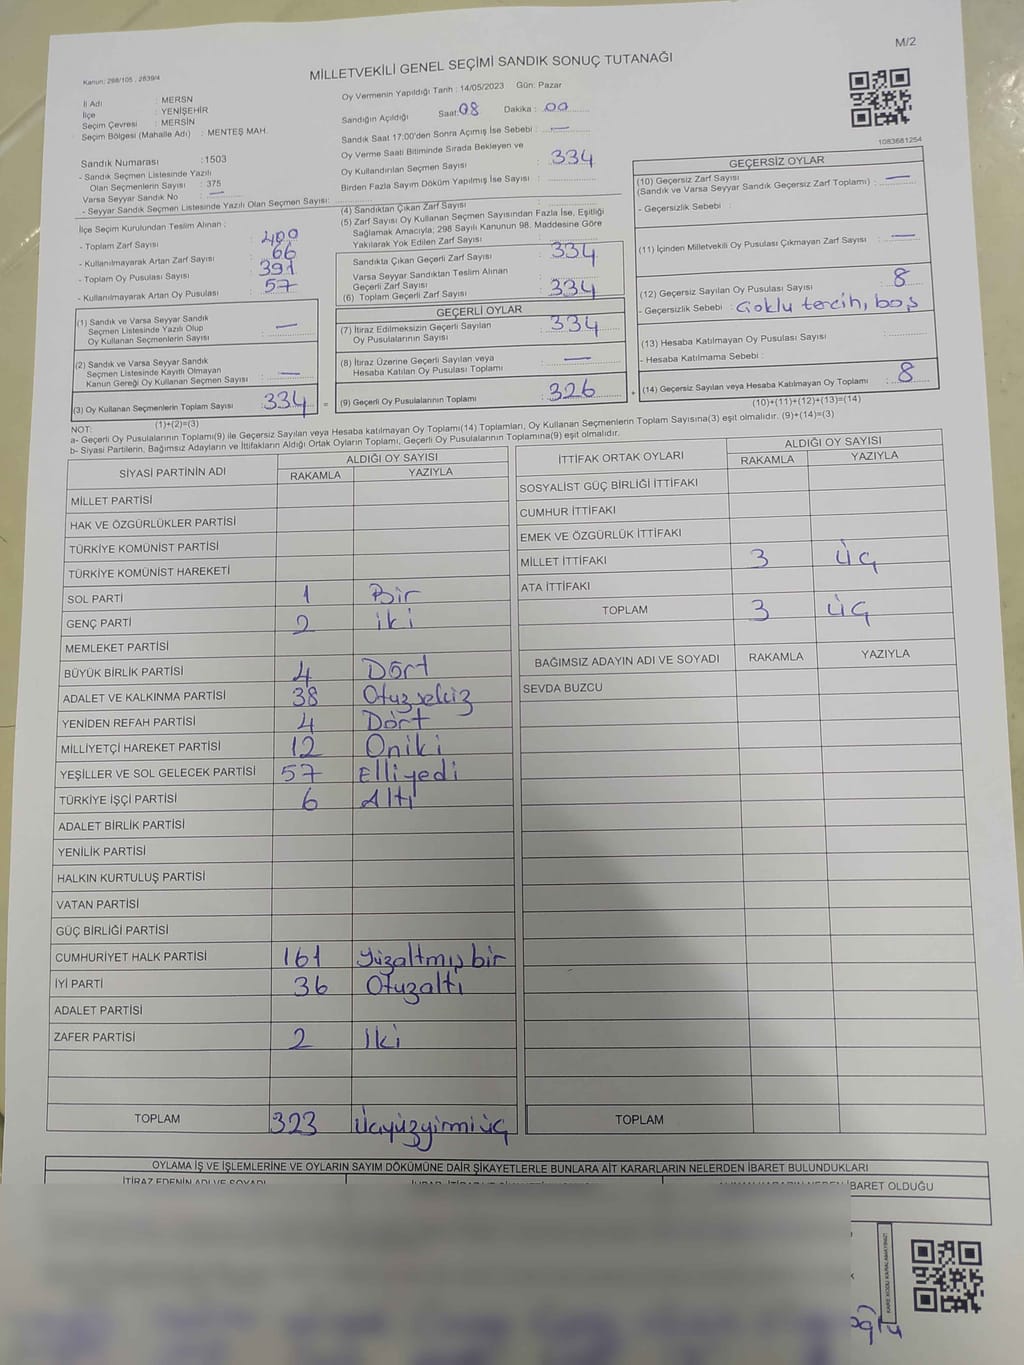 M/2
Kanun: 298/105 , 2839/4
MİLLETVEKİLİ GENEL SEÇİMİ SANDIK SONUÇ TUTANAĞI
İl Adı : MERSN
İlçe : YENİŞEHİR
Seçim Çevresi : MERSİN
Seçim Bölgesi (Mahalle Adı) : MENTEŞ MAH.
Sandık Numarası :1503
- Sandık Seçmen Listesinde Yazılı
Olan Seçmenlerin Sayısı : 375
Varsa Seyyar Sandık No : —
- Seyyar Sandık Seçmen Listesinde Yazılı Olan Seçmen Sayısı:
Oy Vermenin Yapıldığı Tarih : 14/05/2023 Gün: Pazar
Sandığın Açıldığı Saat:08 Dakika : 00
Sandık Saat 17:00'den Sonra Açımış İse Sebebi : —
Oy Verme Saati Bitiminde Sırada Bekleyen ve
Oy Kullandırılan Seçmen Sayısı : 334
Birden Fazla Sayım Döküm Yapılmış İse Sayısı :
1083681254
İlçe Seçim Kurulundan Teslim Alınan :
- Toplam Zarf Sayısı : 400
- Kullanılmayarak Artan Zarf Sayısı : 66
- Toplam Oy Pusulası Sayısı : 391
- Kullanılmayarak Artan Oy Pusulası : 57
(1) Sandık ve Varsa Seyyar Sandık
Seçmen Listesinde Yazılı Olup
Oy Kullanan Seçmenlerin Sayısı : —
(2) Sandık ve Varsa Seyyar Sandık
Seçmen Listesinde Kayıtlı Olmayan
Kanun Gereği Oy Kullanan Seçmen Sayısı : —
(3) Oy Kullanan Seçmenlerin Toplam Sayısı : 334 =
(1)+(2)=(3)
(4) Sandıktan Çıkan Zarf Sayısı :
(5) Zarf Sayısı Oy Kullanan Seçmen Sayısından Fazla İse, Eşitliği
Sağlamak Amacıyla; 298 Sayılı Kanunun 98. Maddesine Göre
Yakılarak Yok Edilen Zarf Sayısı :
Sandıkta Çıkan Geçerli Zarf Sayısı : 334
Varsa Seyyar Sandıktan Teslim Alınan
Geçerli Zarf Sayısı :
(6) Toplam Geçerli Zarf Sayısı : 334
GEÇERLİ OYLAR
(7) İtiraz Edilmeksizin Geçerli Sayılan
Oy Pusulalarının Sayısı : 334
(8) İtiraz Üzerine Geçerli Sayılan veya
Hesaba Katılan Oy Pusulası Toplamı : —
(9) Geçerli Oy Pusulalarının Toplamı : 326 +
GEÇERSİZ OYLAR
(10) Geçersiz Zarf Sayısı
(Sandık ve Varsa Seyyar Sandık Geçersiz Zarf Toplamı) : —
- Geçersizlik Sebebi :
(11) İçinden Milletvekili Oy Pusulası Çıkmayan Zarf Sayısı : —
(12) Geçersiz Sayılan Oy Pusulası Sayısı : 8
- Geçersizlik Sebebi : Çoklu tercih, boş
(13) Hesaba Katılmayan Oy Pusulası Sayısı :
- Hesaba Katılmama Sebebi :
(14) Geçersiz Sayılan veya Hesaba Katılmayan Oy Toplamı : 8
(10)+(11)+(12)+(13)=(14)
NOT:
a- Geçerli Oy Pusulalarının Toplamı(9) ile Geçersiz Sayılan veya Hesaba Katılmayan Oy Toplamı(14) Toplamları, Oy Kullanan Seçmenlerin Toplam Sayısına(3) eşit olmalıdır. (9)+(14)=(3)
b- Siyasi Partilerin, Bağımsız Adayların ve İttifakların Aldığı Ortak Oyların Toplamı, Geçerli Oy Pusulalarının Toplamına(9) eşit olmalıdır.
SİYASİ PARTİNİN ADI ALDIĞI OY SAYISI
RAKAMLA YAZIYLA
MİLLET PARTİSİ
HAK VE ÖZGÜRLÜKLER PARTİSİ
TÜRKİYE KOMÜNİST PARTİSİ
TÜRKİYE KOMÜNİST HAREKETİ
SOL PARTİ 1 Bir
GENÇ PARTİ 2 iki
MEMLEKET PARTİSİ
BÜYÜK BİRLİK PARTİSİ 4 Dört
ADALET VE KALKINMA PARTİSİ 38 Otuzsekiz
YENİDEN REFAH PARTİSİ 4 Dört
MİLLİYETÇİ HAREKET PARTİSİ 12 Oniki
YEŞİLLER VE SOL GELECEK PARTİSİ 57 Elliyedi
TÜRKİYE İŞÇİ PARTİSİ 6 Altı
ADALET BİRLİK PARTİSİ
YENİLİK PARTİSİ
HALKIN KURTULUŞ PARTİSİ
VATAN PARTİSİ
GÜÇ BİRLİĞİ PARTİSİ
CUMHURİYET HALK PARTİSİ 161 Yüzaltmış bir
İYİ PARTİ 36 Otuzaltı
ADALET PARTİSİ
ZAFER PARTİSİ 2 İki
TOPLAM 323 Üçyüzyirmiüç
İTTİFAK ORTAK OYLARI ALDIĞI OY SAYISI
RAKAMLA YAZIYLA
SOSYALİST GÜÇ BİRLİĞİ İTTİFAKI
CUMHUR İTTİFAKI
EMEK VE ÖZGÜRLÜK İTTİFAKI
MİLLET İTTİFAKI 3 Üç
ATA İTTİFAKI
TOPLAM 3 Üç
BAĞIMSIZ ADAYIN ADI VE SOYADI RAKAMLA YAZIYLA
SEVDA BUZCU
TOPLAM
OYLAMA İŞ VE İŞLEMLERİNE VE OYLARIN SAYIM DÖKÜMÜNE DAİR ŞİKAYETLERLE BUNLARA AİT KARARLARIN NELERDEN İBARET BULUNDUKLARI
İTİRAZ EDENİN ADI VE SOYADI
İBARET OLDUĞU
KARE KODU KARALAMAYINIZ!